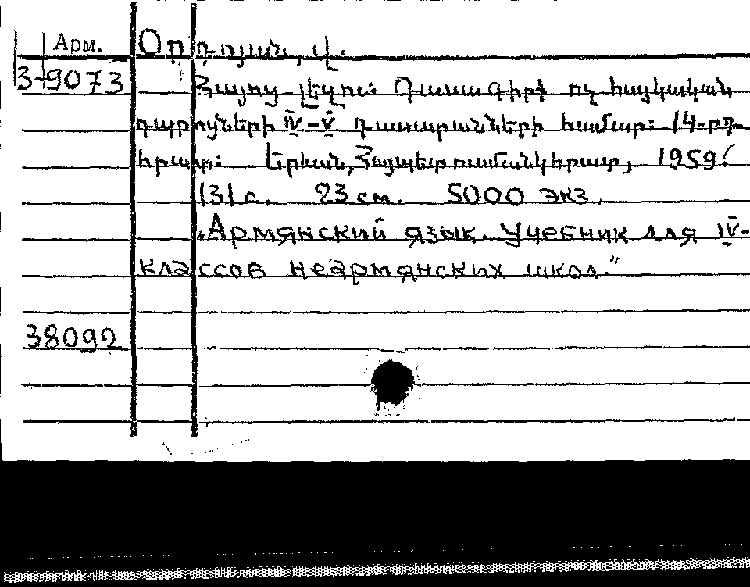 Арм.
3-9073
Հայոց լեզու: Դասագիրք ոչ հայկական
դպրոցների IV-V դասարանների համար: (4-րդ
հրատ: Երևան, Հայպետուսմանկհրատ, 1959.
131 с. 23 см. 5000 экз.
"Армянский язык. Учебник для IV-
классов неармянских школ."
38092